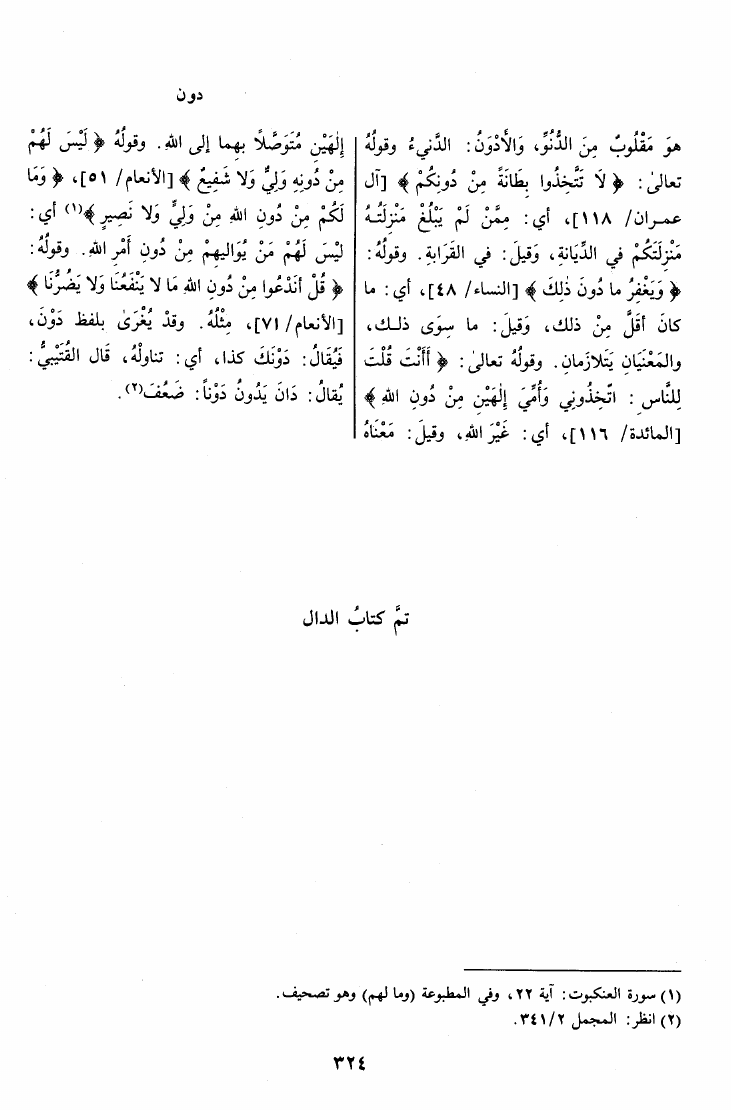 دون
هوَ مَقْلُوبٌ مِنَ الدُّنُوِّ، وَالأَدْوَنُ: الدَّنيءُ وقولُهُ
تعالىٰ: ﴿ لاَ تَتَّخِذُوا بِطَانَةً مِنْ دُونِكُمْ ﴾ [آل
عمران/ ١١٨]، أي: مِمَّنْ لَمْ يَبْلُغْ مَنْزِلَتُهُ
مَنْزِلَتَكُمْ في الدِّيَانةِ، وَقيلَ: في القَرَابةِ. وقولُهُ:
﴿ وَيَغْفِرُ ما دُونَ ذٰلِكَ ﴾ [النساء/ ٤٨]، أي: ما
كانَ أقَلَّ مِنْ ذلك، وَقيلَ: ما سِوَى ذلك،
والمَعْنَيَانِ يَتَلازمان. وقولُهُ تعالىٰ: ﴿ أَأَنْتَ قُلْتَ
لِلنَّاسِ: اتَّخِذُونِي وَأُمِّيَ إِلٰهَيْنِ مِنْ دُونِ اللهِ ﴾
[المائدة/ ١١٦]، أي: غَيْرَ اللهِ، وقيلَ: مَعْنَاهُ
إِلٰهَيْنِ مُتَوَصَّلاً بهما إلى اللهِ. وقولُهُ ﴿ لَيْسَ لَهُمْ
مِنْ دُونِهِ وَلِيٌّ وَلا شَفِيعٌ ﴾ [الأنعام/ ٥١]، ﴿ وَمَا
لَكُمْ مِنْ دُونِ اللهِ مِنْ وَلِيٍّ وَلا نَصِيرٍ ﴾(١) أي:
لَيْسَ لَهُمْ مَنْ يُوَاليهِمْ مِنْ دُونِ أَمْرِ اللهِ. وقولُهُ:
﴿ قُلْ أَنَدْعُوا مِنْ دُونِ اللهِ مَا لا يَنْفَعُنَا وَلا يَضُرُّنَا ﴾
[الأنعام/ ٧١]، مِثْلُهُ. وقدْ يُغْرَىٰ بلفظِ دَوْنَ،
فَيُقالُ: دَوْنَكَ كذا، أي: تناولْهُ، قال القُتَيْبِيُّ:
يُقالُ: دَانَ يَدُونُ دَوْناً: ضَعُفَ(٢).
تمَّ كتابُ الدال
(١) سورة العنكبوت: آية ٢٢، وفي المطبوعة (وما لهم) وهو تصحيف.
(٢) انظر: المجمل ٣٤١/٢.
٣٢٤